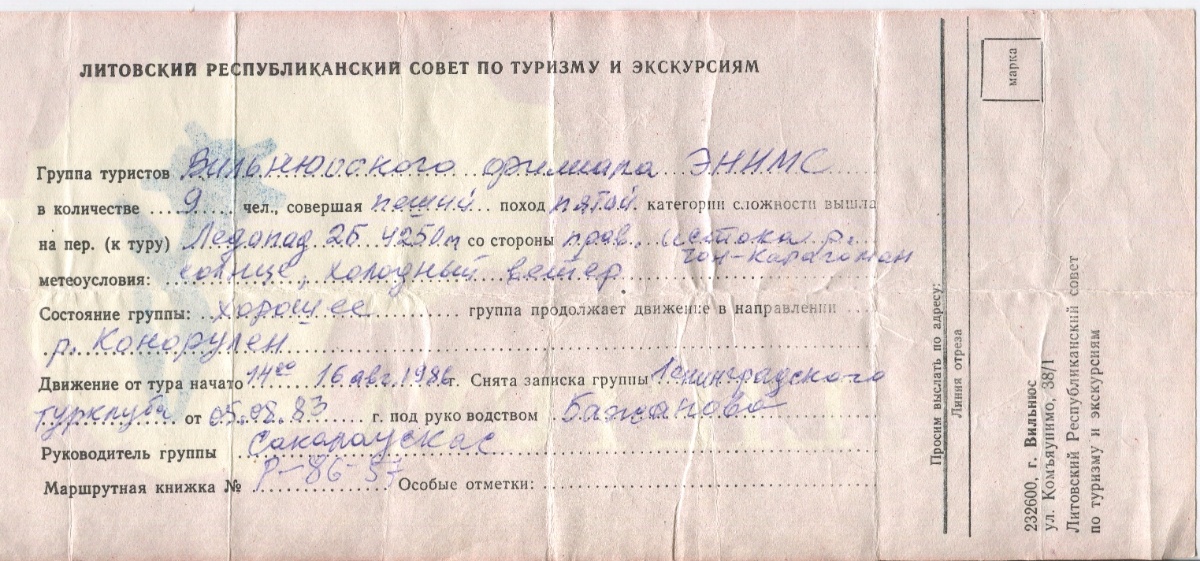 ЛИТОВСКИЙ РЕСПУБЛИКАНСКИЙ СОВЕТ ПО ТУРИЗМУ И ЭКСКУРСИЯМ
Группа туристов Вильнюсского филиала ЭНИМС
в количестве 9 чел., совершая пеший поход пятой категории сложности вышла
на пер. (к туру) Ледопад 2Б 4250м со стороны прав. истока р.
Чон-Карагоман
метеоусловия: солнце, холодный ветер
Состояние группы: хорошее группа продолжает движение в направлении
р. Конорулен
Движение от тура начато 14 00 16 авг. 1986 г. Снята записка группы Ленинградского
турклуба от 05.08.83 г. под руководством Бажанова
Руководитель группы Сакараускас
Маршрутная книжка № Р-86-57 Особые отметки:
Просим выслать по адресу:
Линия отреза
марка
232600, г. Вильнюс
ул. Комъяунимо, 38/1
Литовский Республиканский совет
по туризму и экскурсиям